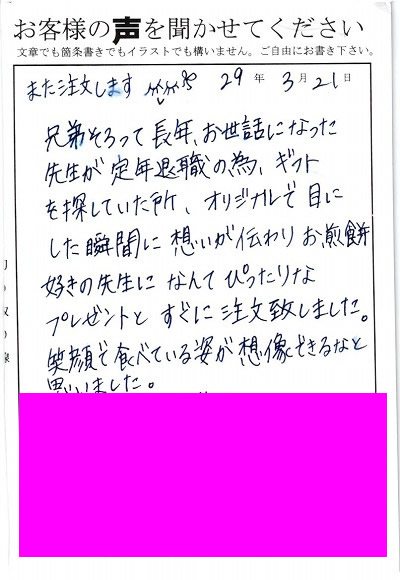 お客様の声を聞かせてください
文章でも箇条書きでもイラストでも構いません。ご自由にお書き下さい。
また注文します 29年 3月21日
兄弟そろって長年、お世話になった
先生が定年退職の為、ギフト
を探していた所、オリジナルで目に
した瞬間に想いが伝わりお煎餅
好きの先生になんてぴったりな
プレゼントとすぐに注文致しました。
笑顔で食べている姿が想像できるなと
思いました。